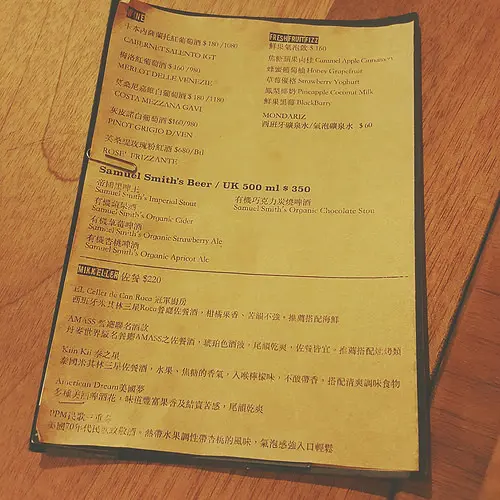 WINE
卡本內薩蘭托紅葡萄酒 $180/1080
CABERNET SALENTO IGT
梅洛紅葡萄酒 $160/980
MERLOT DELLE VENEZIE
艾桑尼嘉維白葡萄酒 $180/1180
COSTA MEZZANA GAVI
灰皮諾白葡萄酒 $160/980
PINOT GRIGIO D/VEN
玫瑰粉紅酒 $680/Btl
ROSE' FRIZZANTE
FRESHFRUITFIZZ
鮮果氣泡飲 $160
焦糖蘋果肉桂 Caramel Apple Cinnamon
蜂蜜葡萄柚 Honey Grapefruit
草莓優格 Strawberry Yoghurt
鳳梨椰奶 Pineapple Coconut Milk
鮮果黑莓 BlackBerry
MONDARIZ
西班牙礦泉水/氣泡礦泉水 $60
Samuel Smith's Beer / UK 500 ml $ 350
帝國黑啤
Samuel Smith's Imperial Stout
有機蘋果酒
Samuel Smith's Organic Cider
有機草莓啤酒
Samuel Smith's Organic Strawberry Ale
有機杏桃啤酒
Samuel Smith's Organic Apricot Ale
有機巧克力炭燒啤酒
Samuel Smith's Organic Chocolate Stout
MIKKELLER 佐餐 $220
EL Celler de Can Roca 冠軍廚房
西班牙米其林三星Roca餐廳佐餐酒，柑橘果香、苦韻不強。推薦搭配海鮮
AMASS 餐廳聯名酒款
丹麥世界級名餐廳AMASS之佐餐酒，琥珀色酒液，尾韻乾爽，佐餐皆宜。推薦搭配燒烤類
Kiin Kii 泰之星
泰國米其林三星佐餐酒，水果、焦糖的香氣，入喉檸檬味，不酸帶香，搭配清爽調味食物
American Dream美國夢
多種美國啤酒花，味道豐富果香及結實苦感，尾韻乾爽
美國70年代民歌致敬酒。熱帶水果調性帶杏桃的風味，氣泡感強入口輕鬆